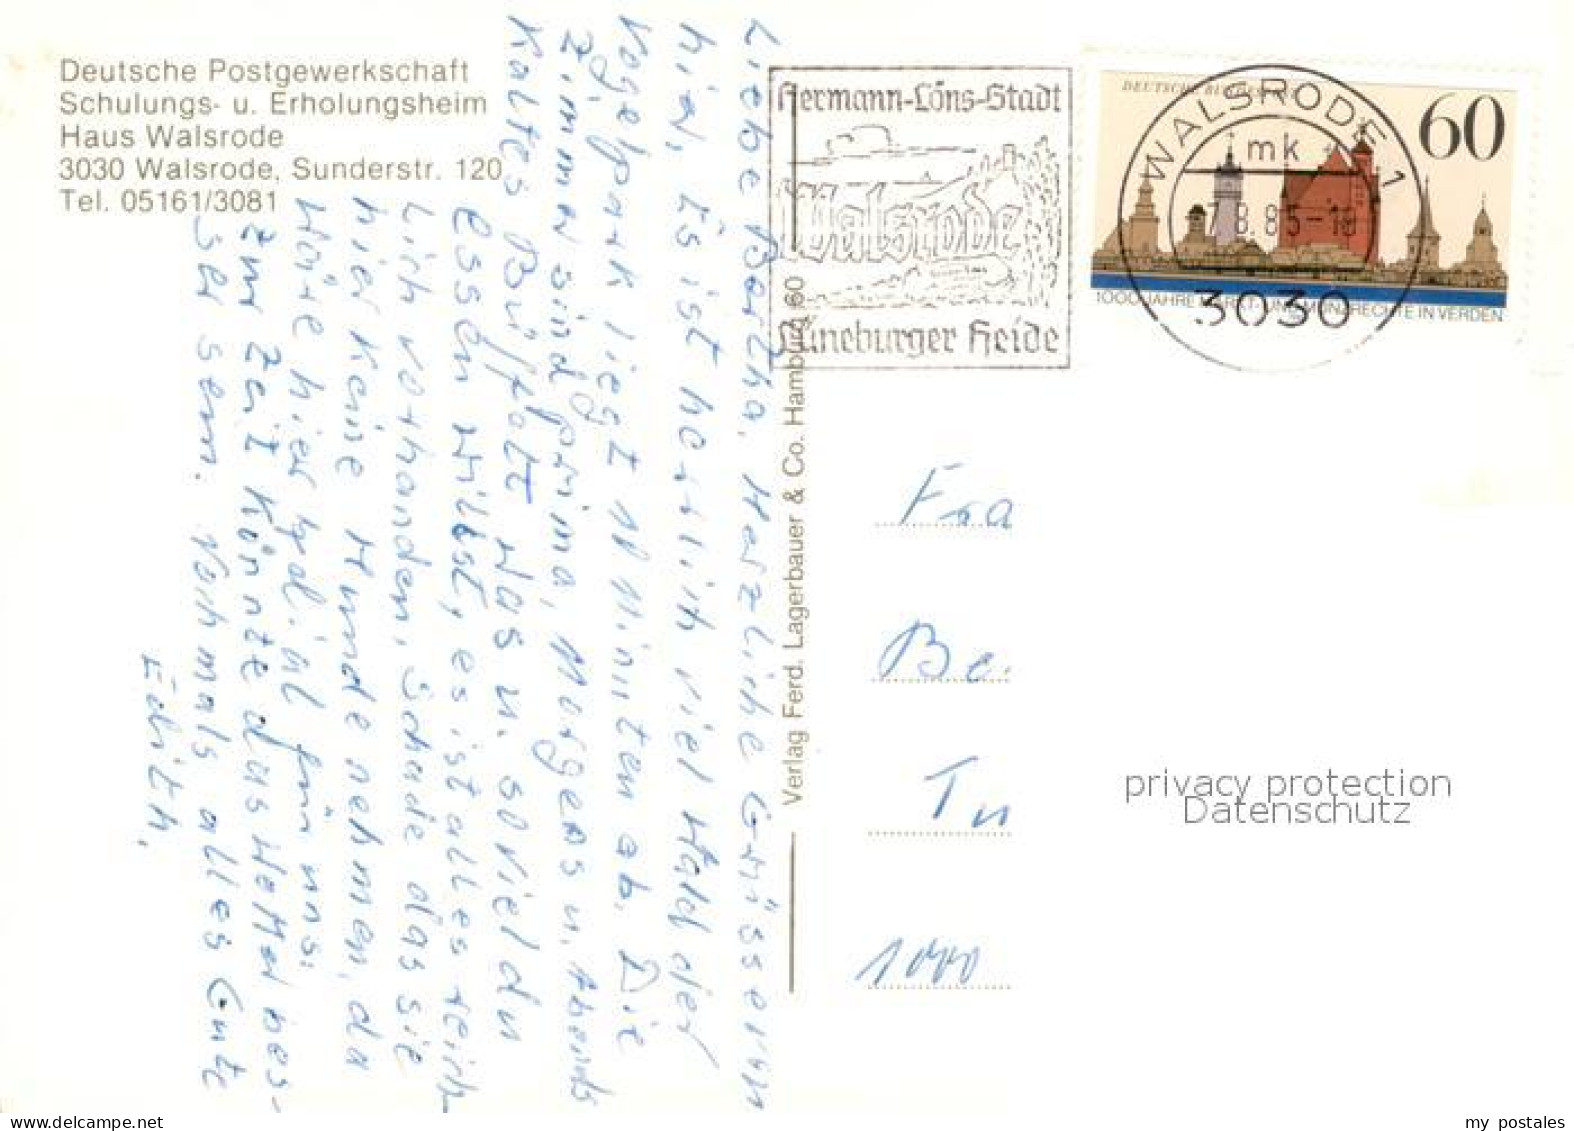 Deutsche Postgewerkschaft
Schulungs- u. Erholungsheim
Haus Walsrode
3030 Walsrode, Sunderstr. 120
Tel. 05161/3081
Liebe Bertha, Herzliche Grüsse von
hier, Es ist herrlich viel Wald der
Vogelpark liegt 10 Minuten ab. Die
Zimmer sind prima, Morgens u. Abends
Kaltes Büffett was u. soviel du
essen willst, es ist alles reich
lich vorhanden, Schade das sie
hier keine Hunde nehmen, da
wäre hier für uns.
zur Zeit könnte das Wetter bes-
ser sein. Nochmals alles Gute
Edith,
Verlag Ferd. Lagerbauer & Co. Hamburg 60
Hermann-Löns-Stadt
Walsrode
Lüneburger Heide
DEUTSCHE BUNDESPOST
60
1000 JAHRE MARKT- UND MÜNZRECHTE IN VERDEN
WALSRODE 1
mk
3030
Fra
Be
Tu
1000
privacy protection
Datenschutz
my postales